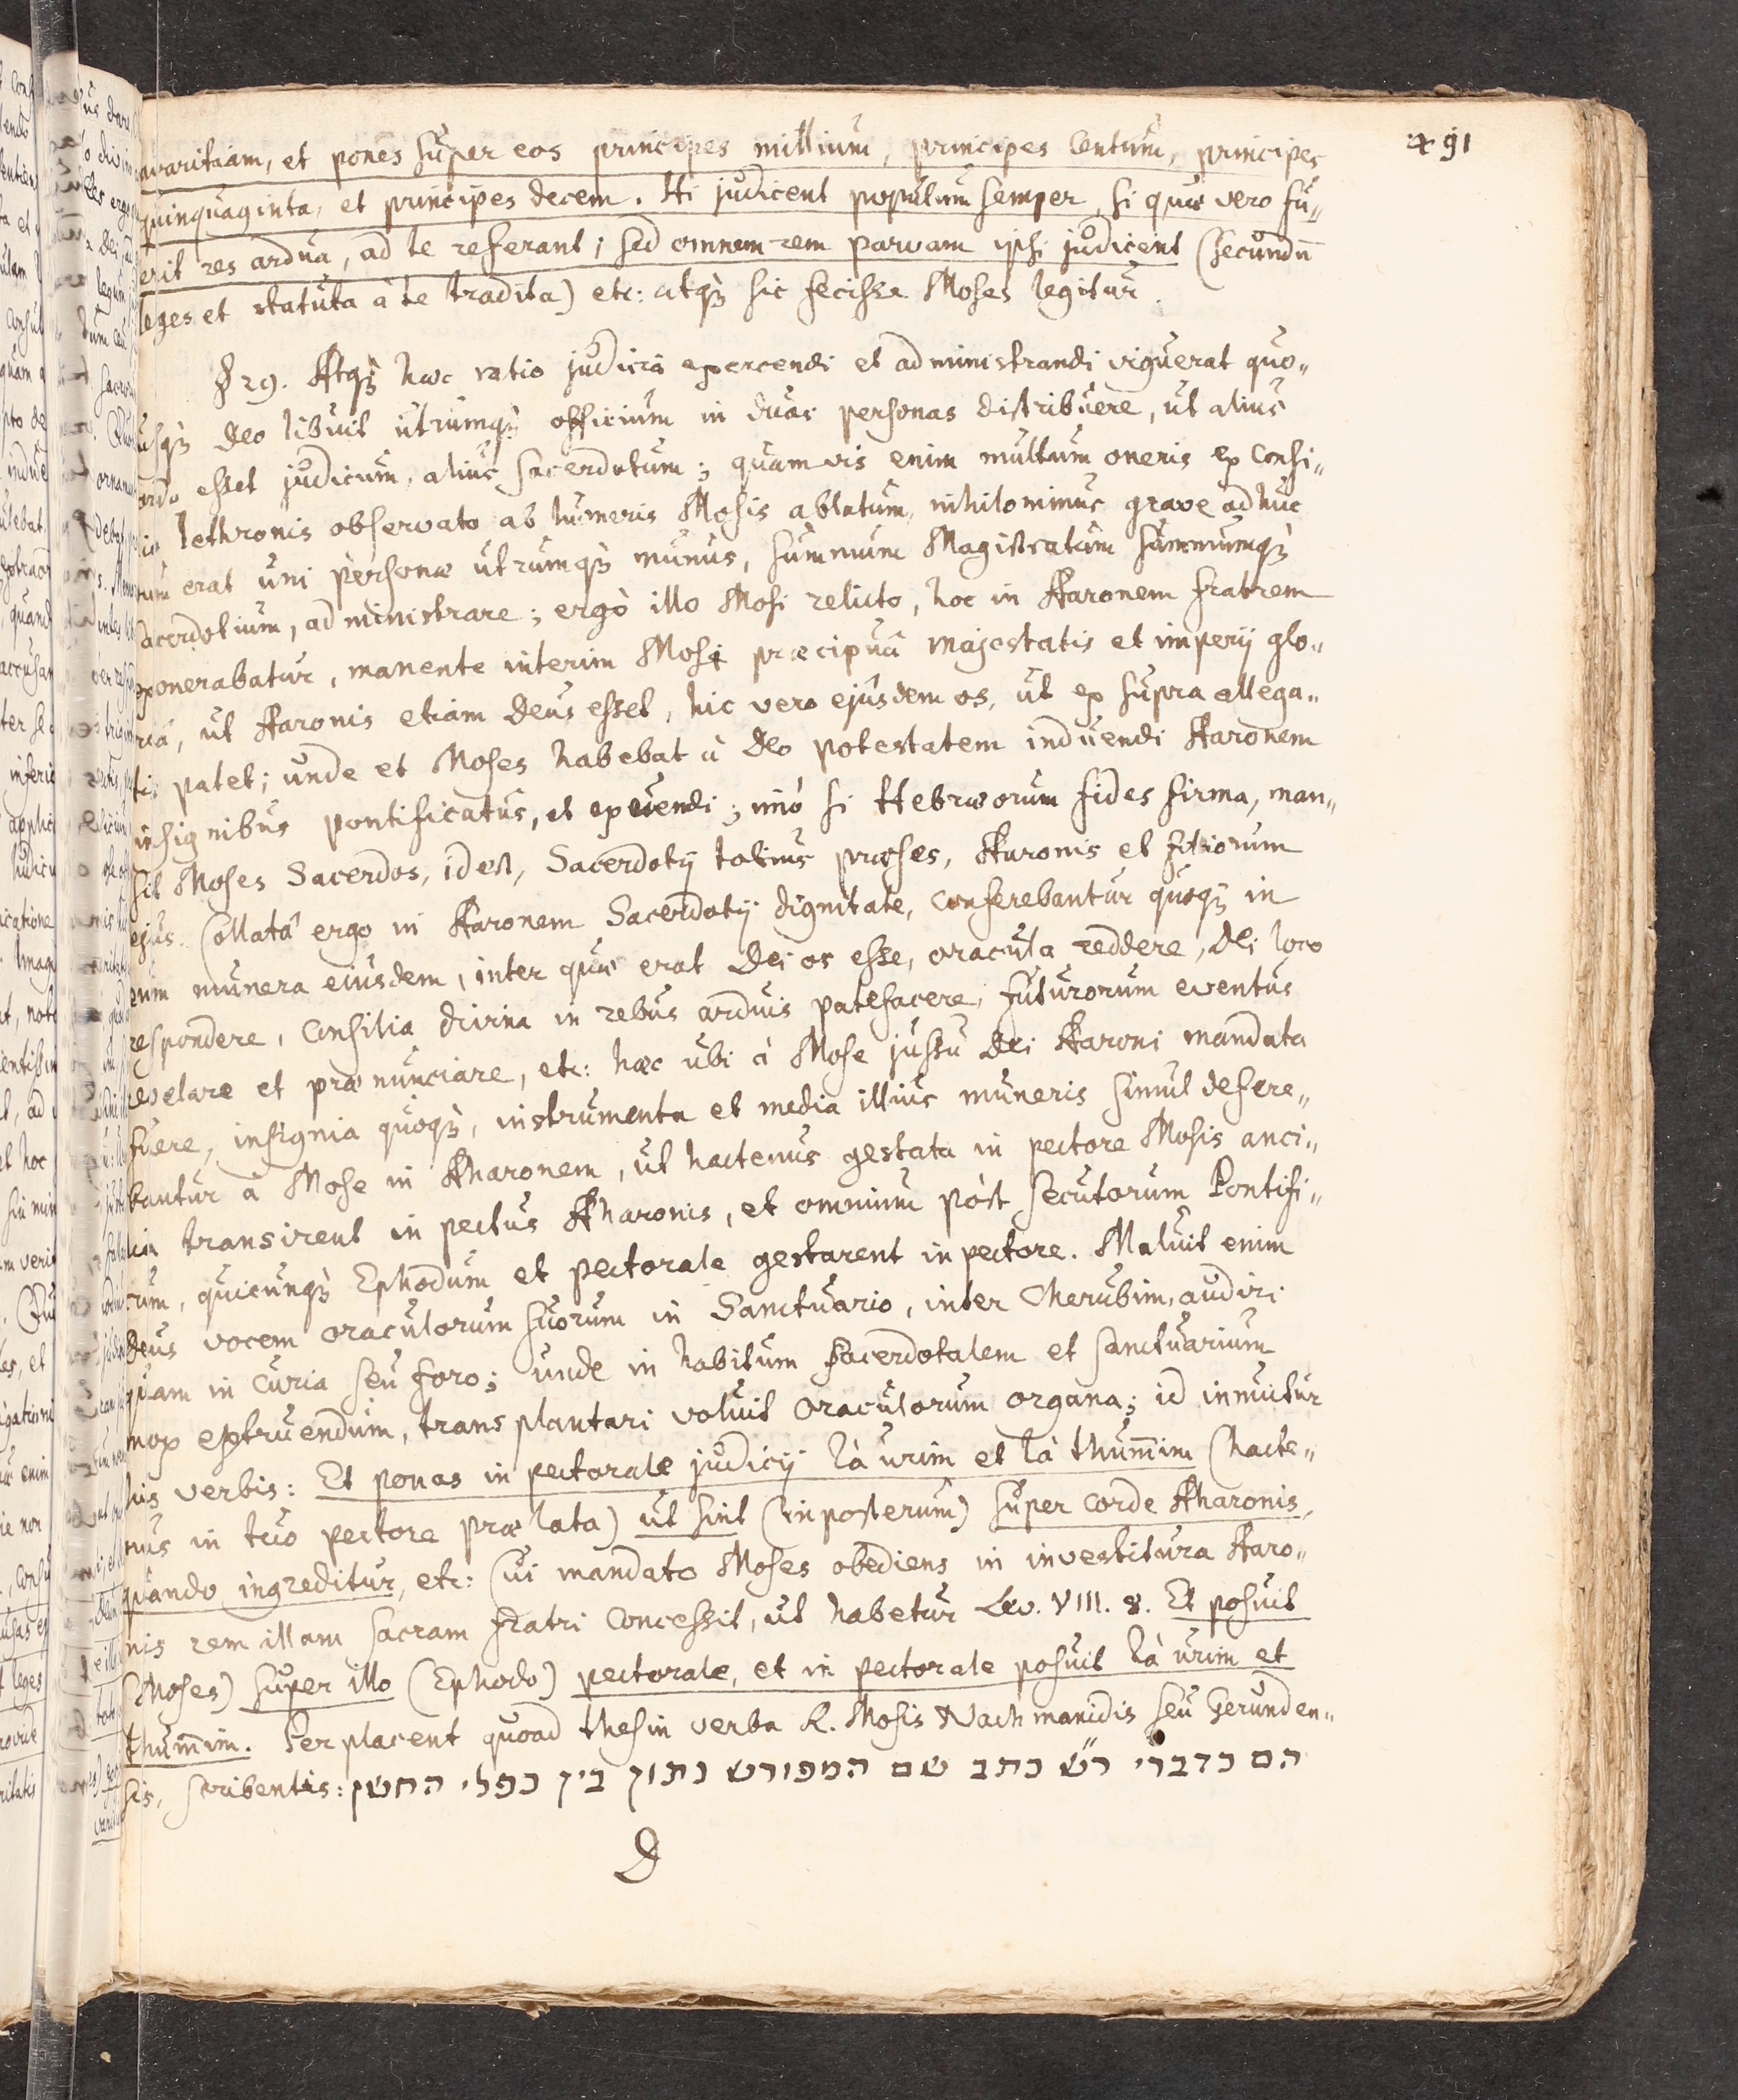 91
avaritiam, et pones super eos principes millium, principes Centum, principes
quinquaginta, et principes decem. Hi judicent populum semper, si quæ vero fu„
erit res ardua, ad te referant; sed omnem rem parvam ipsi judicent (secundū
leges et statuta à te tradita) etc: atqꝫ sic fecisse Moses legitur.
§ 29. Atqꝫ hæc ratio judicia exercendi et administrandi viguerat quo„
usqꝫ Deo libuit utrumqꝫ officium in duas personas distribuere, ut alius
ordo esset judicum, alius Sacerdotum; quamvis enim multum oneris ex Consi„
lio Iethronis observato ab humeris Mosis ablatum, nihilominus grave adhuc
tum erat uni personæ utrumqꝫ munus, summum Magistratum summumqꝫ
sacerdotium, administrare; ergò illo Mosi relicto, hoc in Aaronem fratrem
exonerabatur, manente interim Mosi præcipuâ majestatis et imperij glo„
riâ, ut Aaronis etiam Deus esset, hic vero ejusdem os, ut ex supra allega„
tis patet; unde et Moses habebat à Deo potestatem induendi Aaronem
insignibus pontificatus, et exuendi; imò si Hebræorum fides firma, man„
sit Moses Sacerdos, id est, Sacerdotij totius præses, Aaronis et filiorum
ejus. Collatâ ergo in Aaronem Sacerdotij dignitate, conferebantur quoqꝫ in
eum munera eiusdem, inter quæ erat Dei os esse, oracula reddere, Dei loco
respondere, Consilia divina in rebus arduis patefacere, futurorum eventus
revelare et prænunciare, etc: hæc ubi à Mose jussu Dei Aaroni mandata
fuere, insignia quoqꝫ, instrumenta et media illius muneris simul defere„
bantur à Mose in Aharonem, ut hactenus gestata in pectore Mosis anci„
lia transirent in pectus Aharonis, et omnium pòst secutorum Pontifi„
cum, quicunqꝫ Ephodum et pectorale gestarent in pectore. Maluit enim
Deus vocem oraculorum suorum in Sanctuario, inter Cherubim, audiri
quam in Curia seu foro; unde in habitum sacerdotalem et sanctuarium
mox extruendum, transplantari voluit oraculorum organa; id innuitur
his verbis: Et ponas in pectorale judicij tà urim et tà thum̄im (hacte„
nus in tuo pectore prælata) ut sint (in posterum) super corde Aharonis,
quando ingreditur, etc: Cui mandato Moses obediens in investitura Aaro„
nis rem illam sacram fratri Concessit, ut habetur Lev. VIII. 8. Et posuit
(Moses) super illo (Ephodo) pectorale, et in pectorale posuit tà urim et
thum̄im. Perplacent quoad thesin verba R. Mosis Nachmanidis seu Gerunden„
sis, scribentis: הם כדברי רש״ כתב שם המפורש נתון בין כפלי החשן